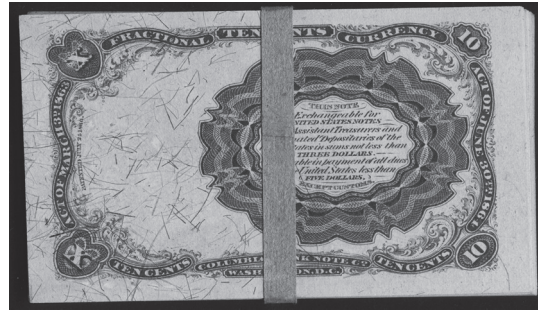 FRACTIONAL TEN CENTS CURRENCY
10
ACT OF MARCH 3RD 1863
ACT OF JUNE 30TH 1864
THIS NOTE
Exchangeable for
UNITED STATES NOTES
Assistant Treasurers and
nated Depositaries of the
tates in sums not less than
THREE DOLLARS.
able in payment of all dues
United States less than
FIVE DOLLARS,
EXCEPT CUSTOMS.
X
TEN CENTS
COLUMBI NK NOTE Co.
WASH ON, D.C.
TEN CENTS
10